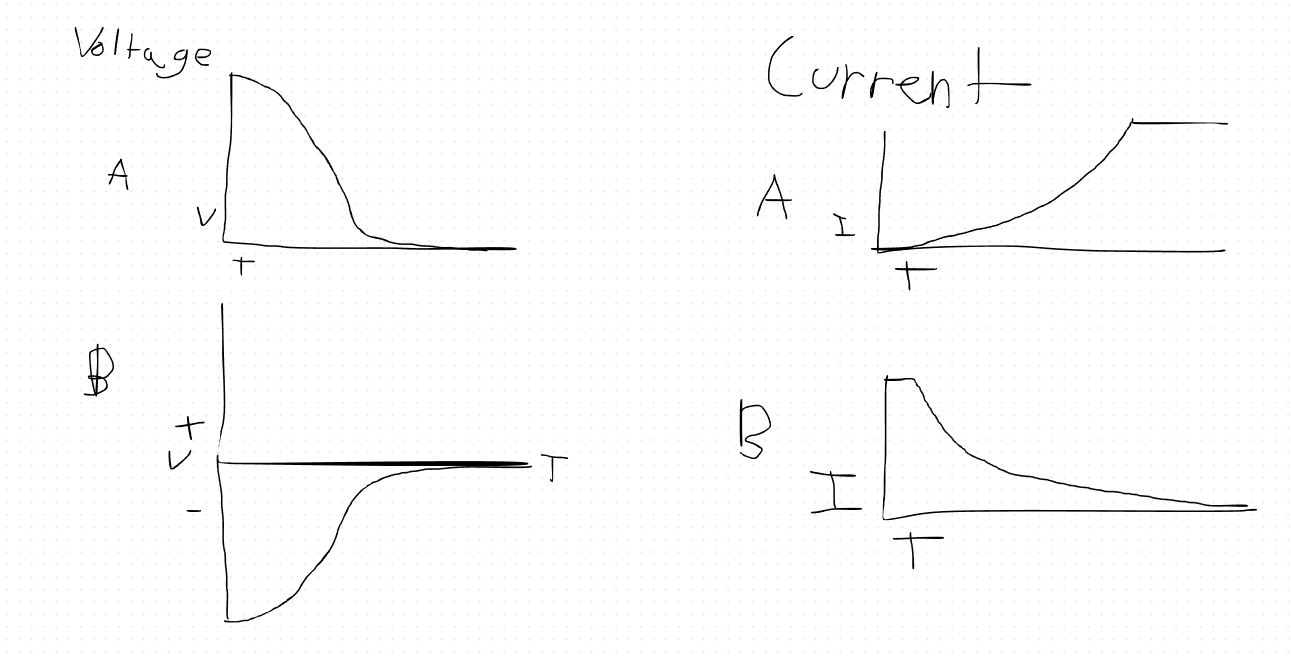 Voltage
A
V
T
B
+
V
-
T
Current
A
I
T
B
I
T